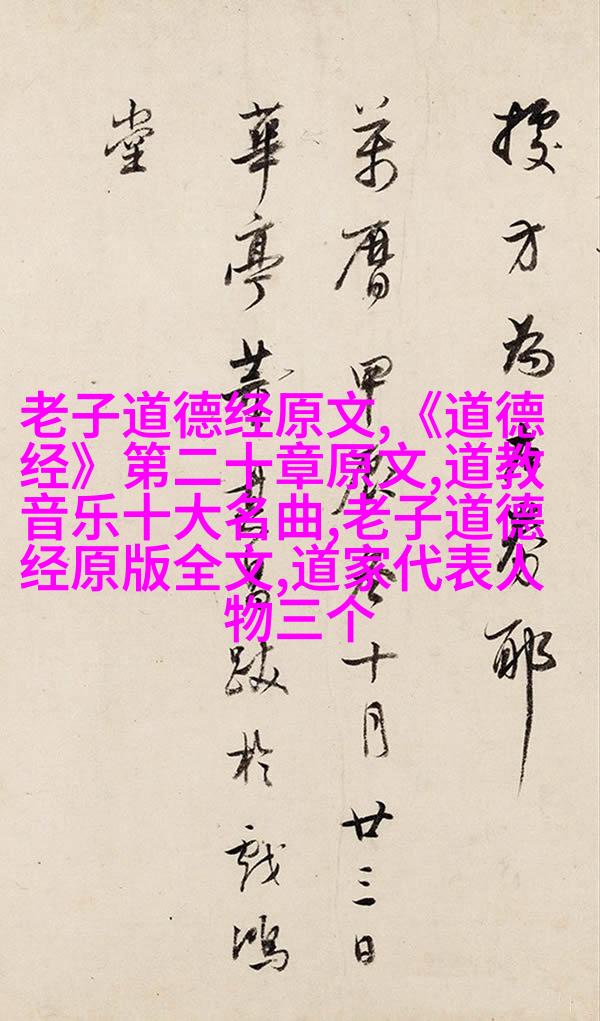 老子道德经原文,《道德
经》第二十章原文,道教
音乐十大名曲,老子道德
经原版全文,道家代表人
物三个
方為耶
萬曆甲辰冬十月廿三日
華亭董其昌跋於戲鴻
堂